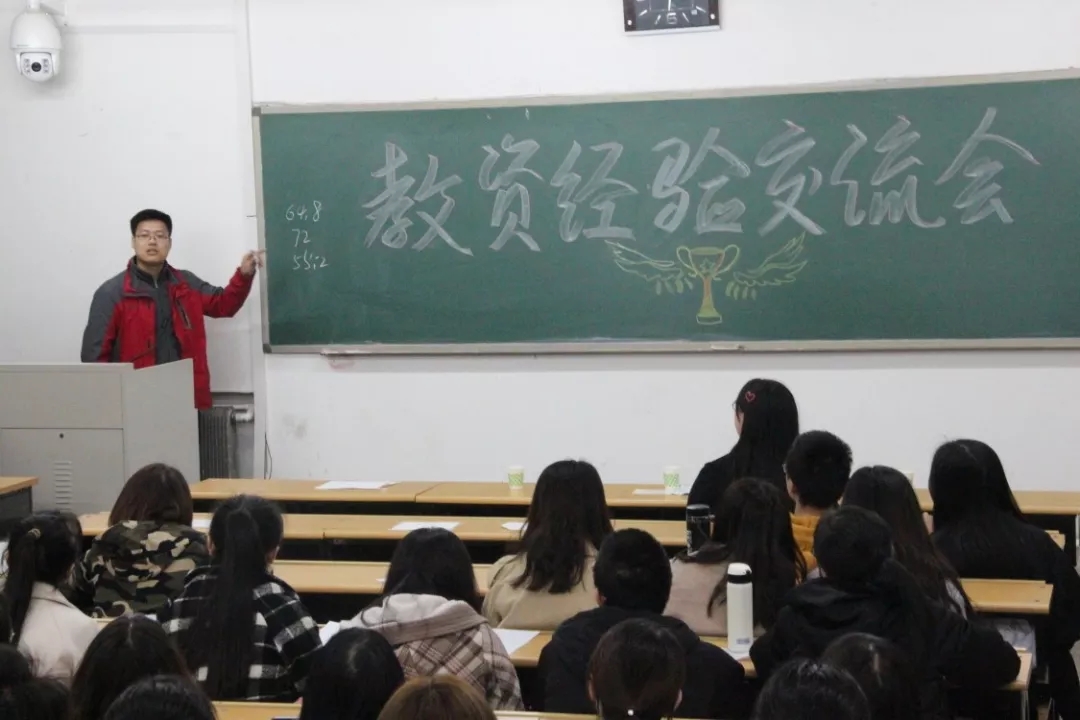 教资经验交流会
64.8
72